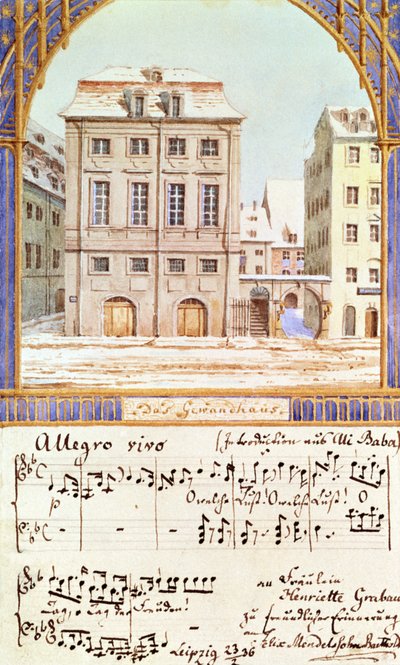 Das Gewandhaus
Allegro vivo
(Introduction aus Ali Baba)
p
O welche Lust! O welche Lust! O
Tag, o Tag der Freuden!
an Fräulein
Henriette Grabau
zu freundlicher Erinnerung
an Felix Mendelssohn Bartholdy
Leipzig 23/2 36